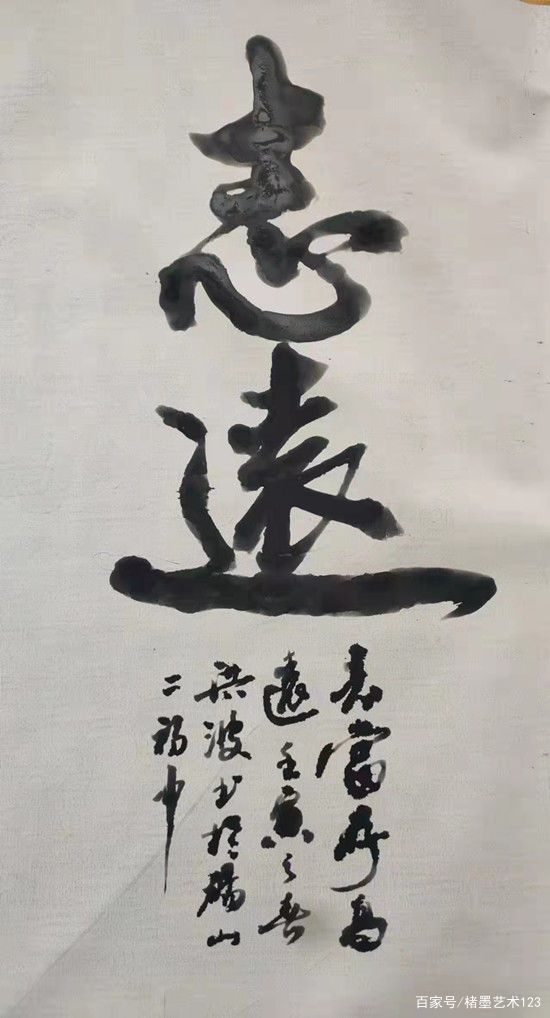 志遠
志當存高
遠壬寅之春
洪波书於碭山
二初中
百家号/楮墨艺术123